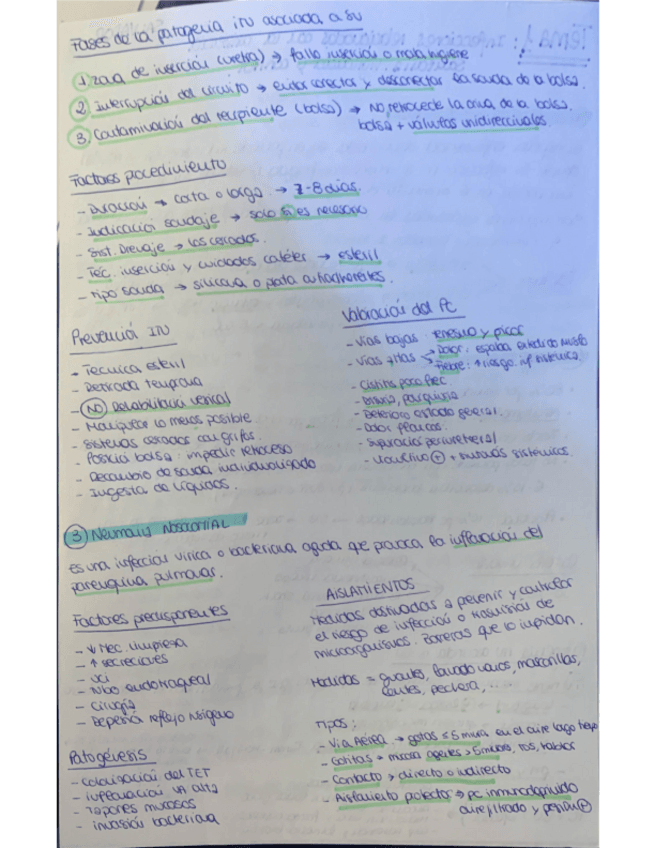 Fases de la patogenia ITU asociada a SV
① Zona de inserción (uretra) → fallo inserción o mala higiene
② Interrupción del circuito → evitar conectar y desconectar la sonda de la bolsa.
③ Contaminación del recipiente (bolsa) → No retrocede la orina de la bolsa.
bolsa + válvulas unidireccionales.
Factores procedimiento
- Duración → corta o larga → 7-8 días.
- Indicación sondaje → solo si es necesario
- Sist. Drenaje → los cerrados.
- Tec. inserción y cuidados catéter → estéril
- Tipo sonda → silicona o plata antiadherentes.
Prevención ITU
- Técnica estéril
- Retirada temprana
- NO Rehabilitación vesical
- Manipular lo menos posible
- Sistemas cerrados con grifos.
- Posición bolsa: impedir retroceso
- Recambio de sonda individualizado
- Ingesta de líquidos.
Valoración del PC
- Vías bajas: tenesmo y picor
- Vías altas → Dolor: espalda
→ Fiebre: ↑ riesgo inf sistémica.
- Cistitis poco frec.
- Disuria, polaquiuria.
- Deterioro estado general.
- Dolor
- Supuración periuretral
- Urocultivo ⊕ + sistémicos.
③ NEUMONÍA NOSOCOMIAL
Es una infección vírica o bacteriana aguda que provoca la inflamación del
parénquima pulmonar.
Factores predisponentes
- ↓ Mec. limpieza
- ↑ secreciones
- UCI
- Tubo endotraqueal
- Cirugía
- reflejo
Patogénesis
- Colonización del TET
- inflamación
- Tapones mucosos
- invasión bacteriana
AISLAMIENTOS
Medidas destinadas a prevenir y controlar
el riesgo de infección o trasmisión de
microorganismos. Barreras que lo impidan.
Medidas = guantes, lavado manos, mascarillas,
...
Tipos:
- Vía Aérea → gotas ≤ 5 micra en el aire largo tiempo
- Gotitas → agentes > 5 micras, tos, hablar
- Contacto → directo o indirecto
- Aislamiento protector → pc inmunodeprimido
aire filtrado y presión ⊕